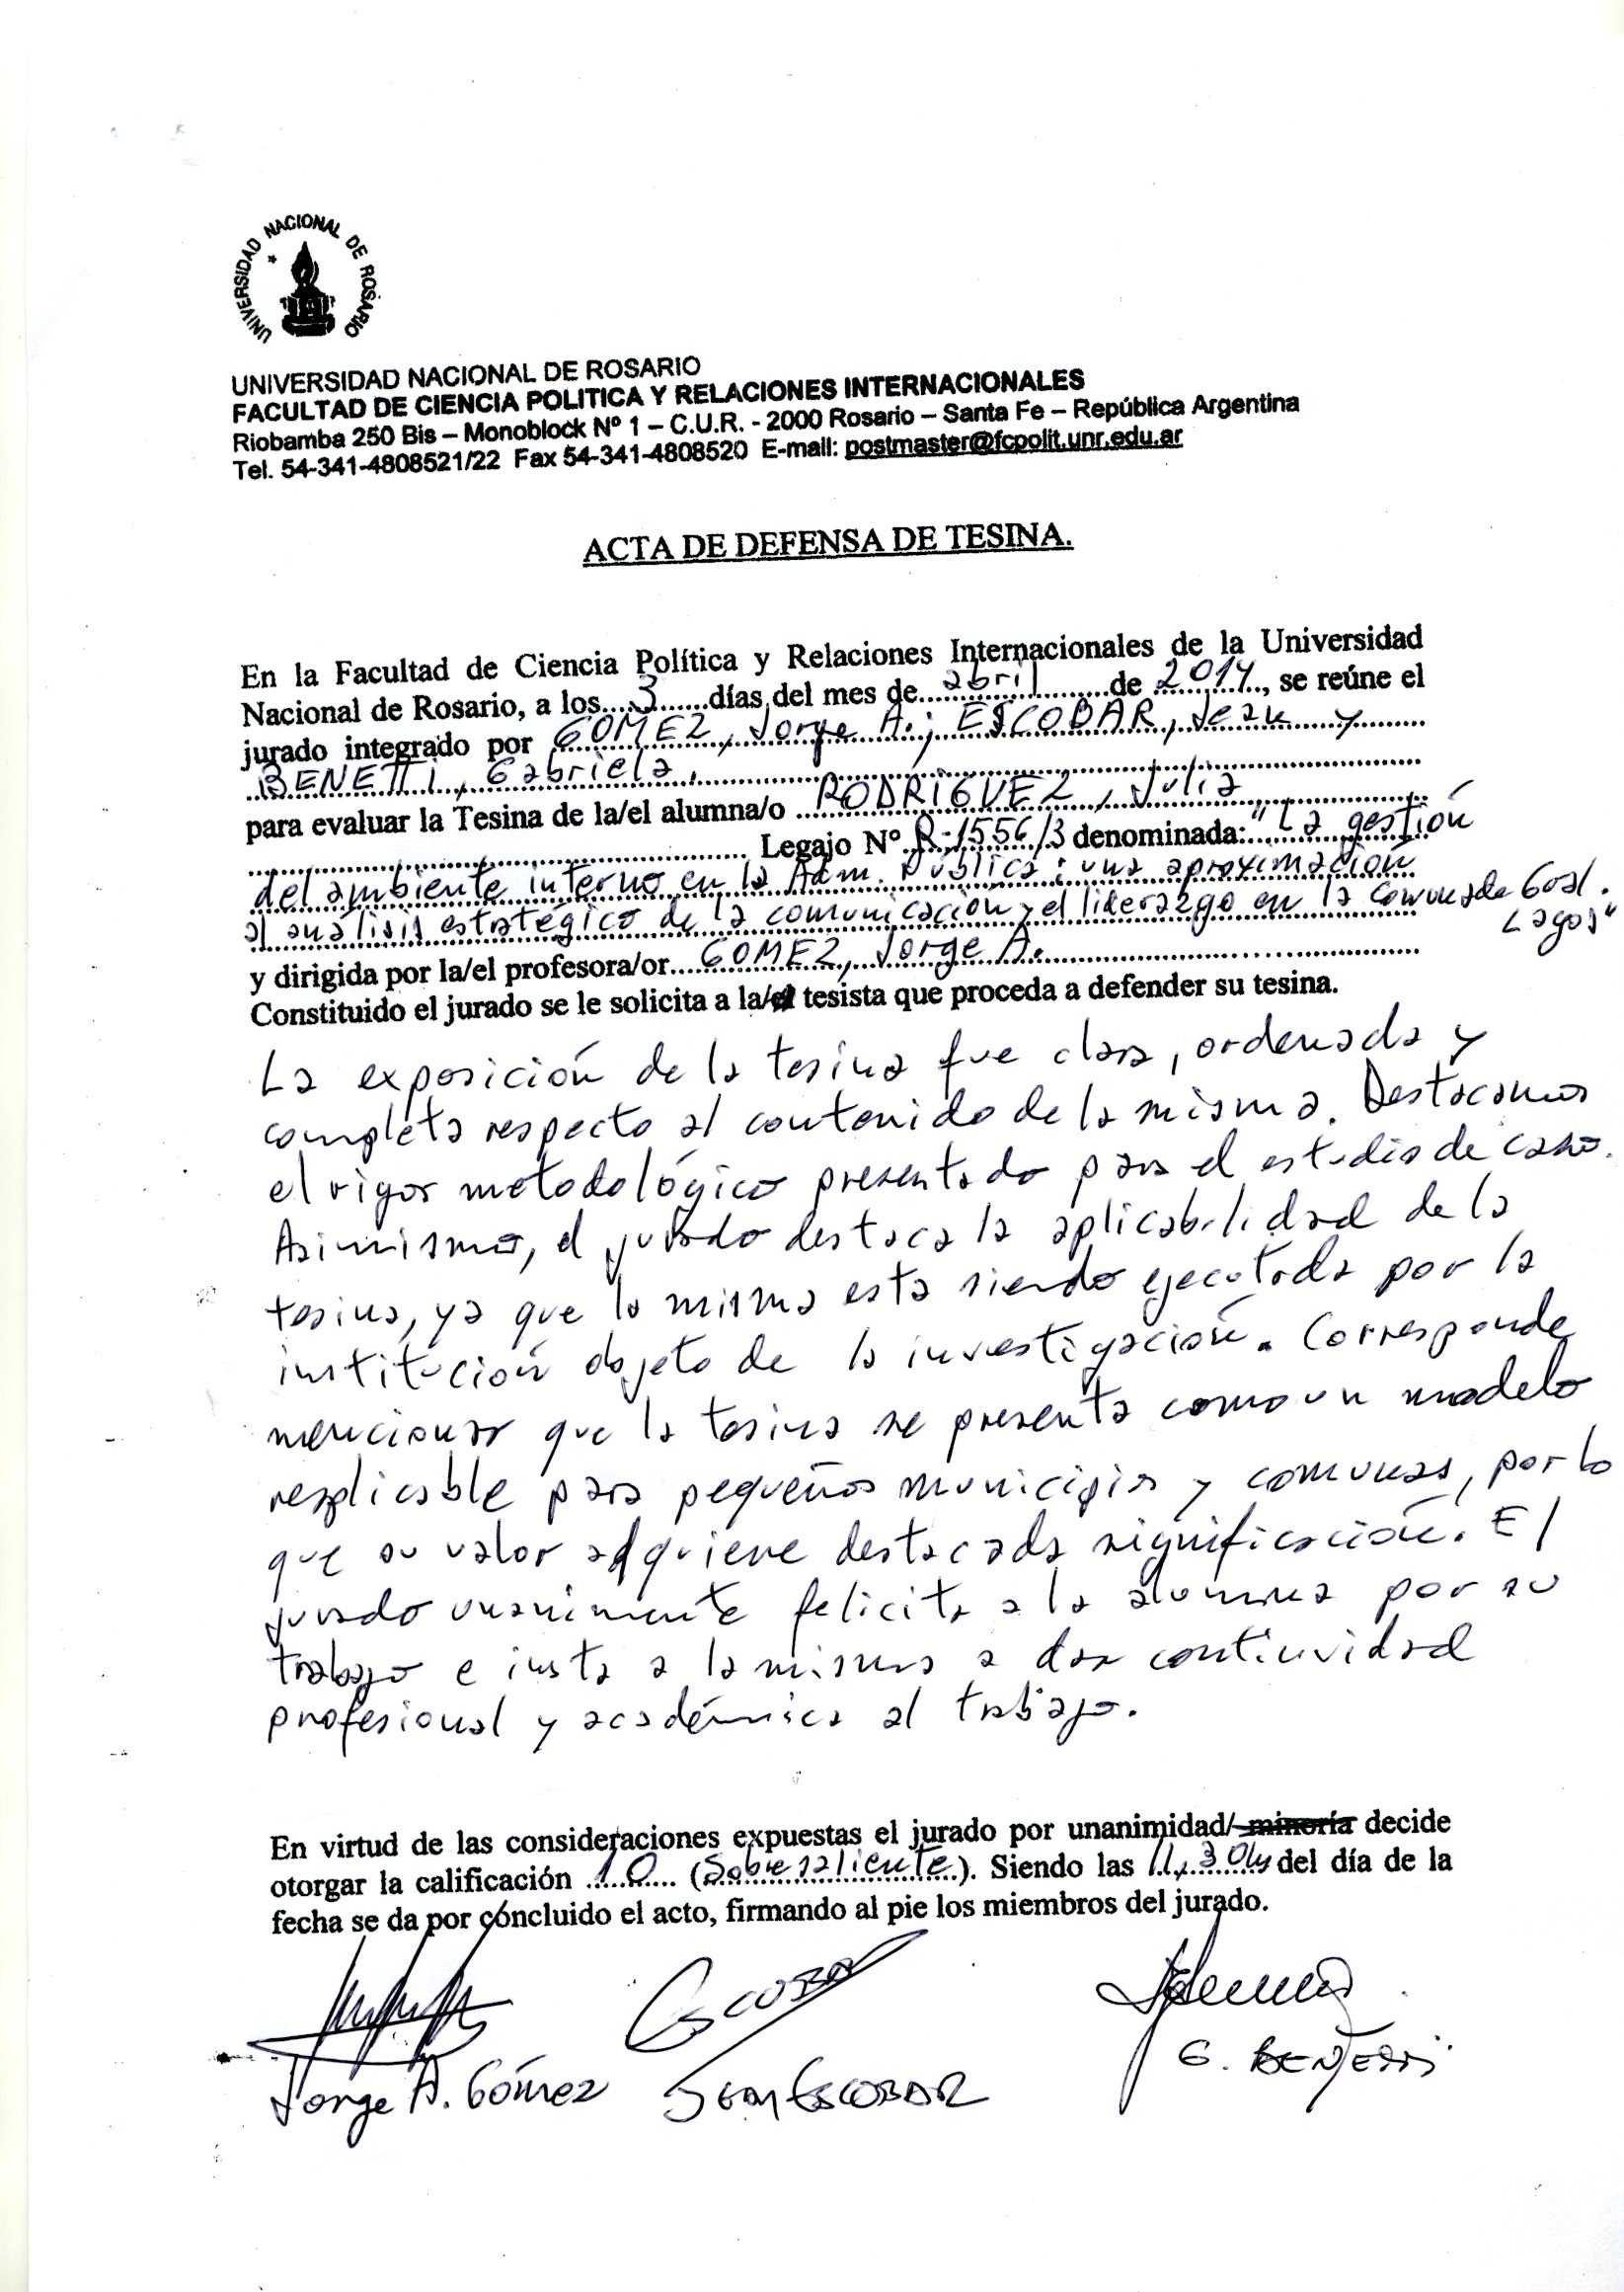 UNIVERSIDAD NACIONAL DE ROSARIO
UNIVERSIDAD NACIONAL DE ROSARIO
FACULTAD DE CIENCIA POLITICA Y RELACIONES INTERNACIONALES
Riobamba 250 Bis – Monoblock Nº 1 – C.U.R. - 2000 Rosario – Santa Fe – República Argentina
Tel. 54-341-4808521/22 Fax 54-341-4808520 E-mail: postmaster@fcpolit.unr.edu.ar
ACTA DE DEFENSA DE TESINA.
En la Facultad de Ciencia Política y Relaciones Internacionales de la Universidad
Nacional de Rosario, a los 3 días del mes de abril de 2014, se reúne el
jurado integrado por GOMEZ, Jorge A.; ESCOBAR, Jean y
BENETTI, Gabriela.
para evaluar la Tesina de la/el alumna/o RODRIGUEZ, Julia
Legajo Nº R-1556/3 denominada: "La gestión
del ambiente interno en la Adm. Pública: una aproximación
al análisis estratégico de la comunicación y el liderazgo en la comuna de Gral.
Lagos"
y dirigida por la/el profesora/or GOMEZ, Jorge A.
Constituido el jurado se le solicita a la/el tesista que proceda a defender su tesina.
La exposición de la tesina fue clara, ordenada y
completa respecto al contenido de la misma. Destacamos
el rigor metodológico presentado para el estudio de caso.
Asimismo, el jurado destaca la aplicabilidad de la
tesina, ya que la misma esta siendo ejecutada por la
institución objeto de la investigación. Corresponde
mencionar que la tesina se presenta como un modelo
replicable para pequeños municipios y comunas, por lo
que su valor adquiere destacada significación. El
jurado unanimente felicita a la alumna por su
trabajo e insta a la misma a dar continuidad
profesional y académica al trabajo.
En virtud de las consideraciones expuestas el jurado por unanimidad/ minoría decide
otorgar la calificación 10 (Sobresaliente). Siendo las 11,30hs del día de la
fecha se da por concluido el acto, firmando al pie los miembros del jurado.
Escobar
Jorge A. Gómez
JEAN ESCOBAR
G. BENETTI